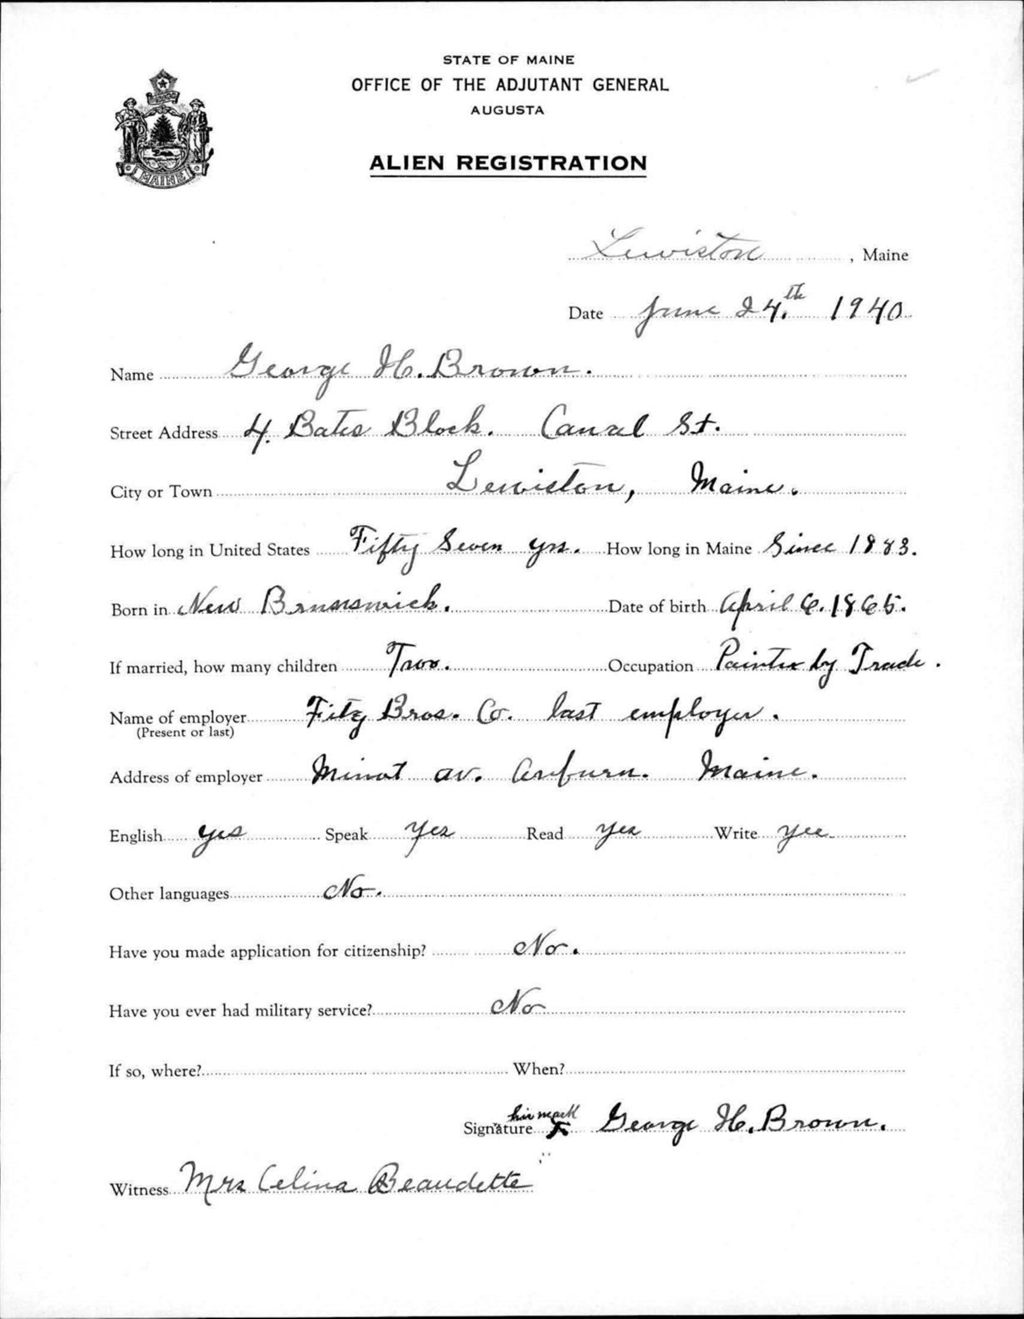 STATE OF MAINE
OFFICE OF THE ADJUTANT GENERAL
AUGUSTA
ALIEN REGISTRATION
MAINE
Lewiston, Maine
Date June 24th 1940
Name George H. Brown.
Street Address 4. Bates Block. Canal St.
City or Town Lewiston, Maine.
How long in United States Fifty Seven yrs. How long in Maine Since 1883.
Born in New Brunswick. Date of birth April 6. 1865.
If married, how many children Two. Occupation Painter by Trade.
Name of employer Fitz Bros. Co. last employer.
(Present or last)
Address of employer Minot av. Auburn. Maine.
English yes Speak Yes Read Yes Write Yes
Other languages No.
Have you made application for citizenship? No.
Have you ever had military service? No
If so, where? When?
his mark
Signature X George H. Brown.
Witness Mrs Celina Beaudette